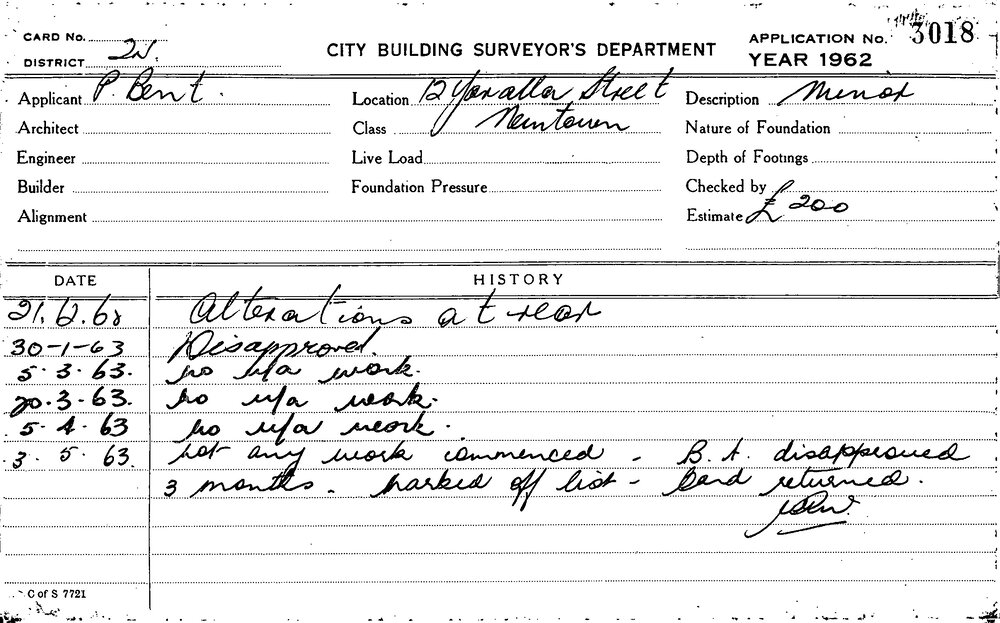 CARD No.
DISTRICT 2W.
CITY BUILDING SURVEYOR'S DEPARTMENT
APPLICATION No. 3018
YEAR 1962
Applicant P. Bent.
Location 12 Yaralla Street
Description Minor
Architect
Class Newtown
Nature of Foundation
Engineer
Live Load
Depth of Footings
Builder
Foundation Pressure
Checked by
Alignment
Estimate £200
DATE
HISTORY
21.12.62 Alterations at rear
30-1-63 Disapproved.
5.3.63. no u/a work.
20.3.63. no u/a work.
5.4.63 no u/a work.
3.5.63. not any work commenced - B.A. disapproved
3 months. marked off list - Card returned.
C of S 7721